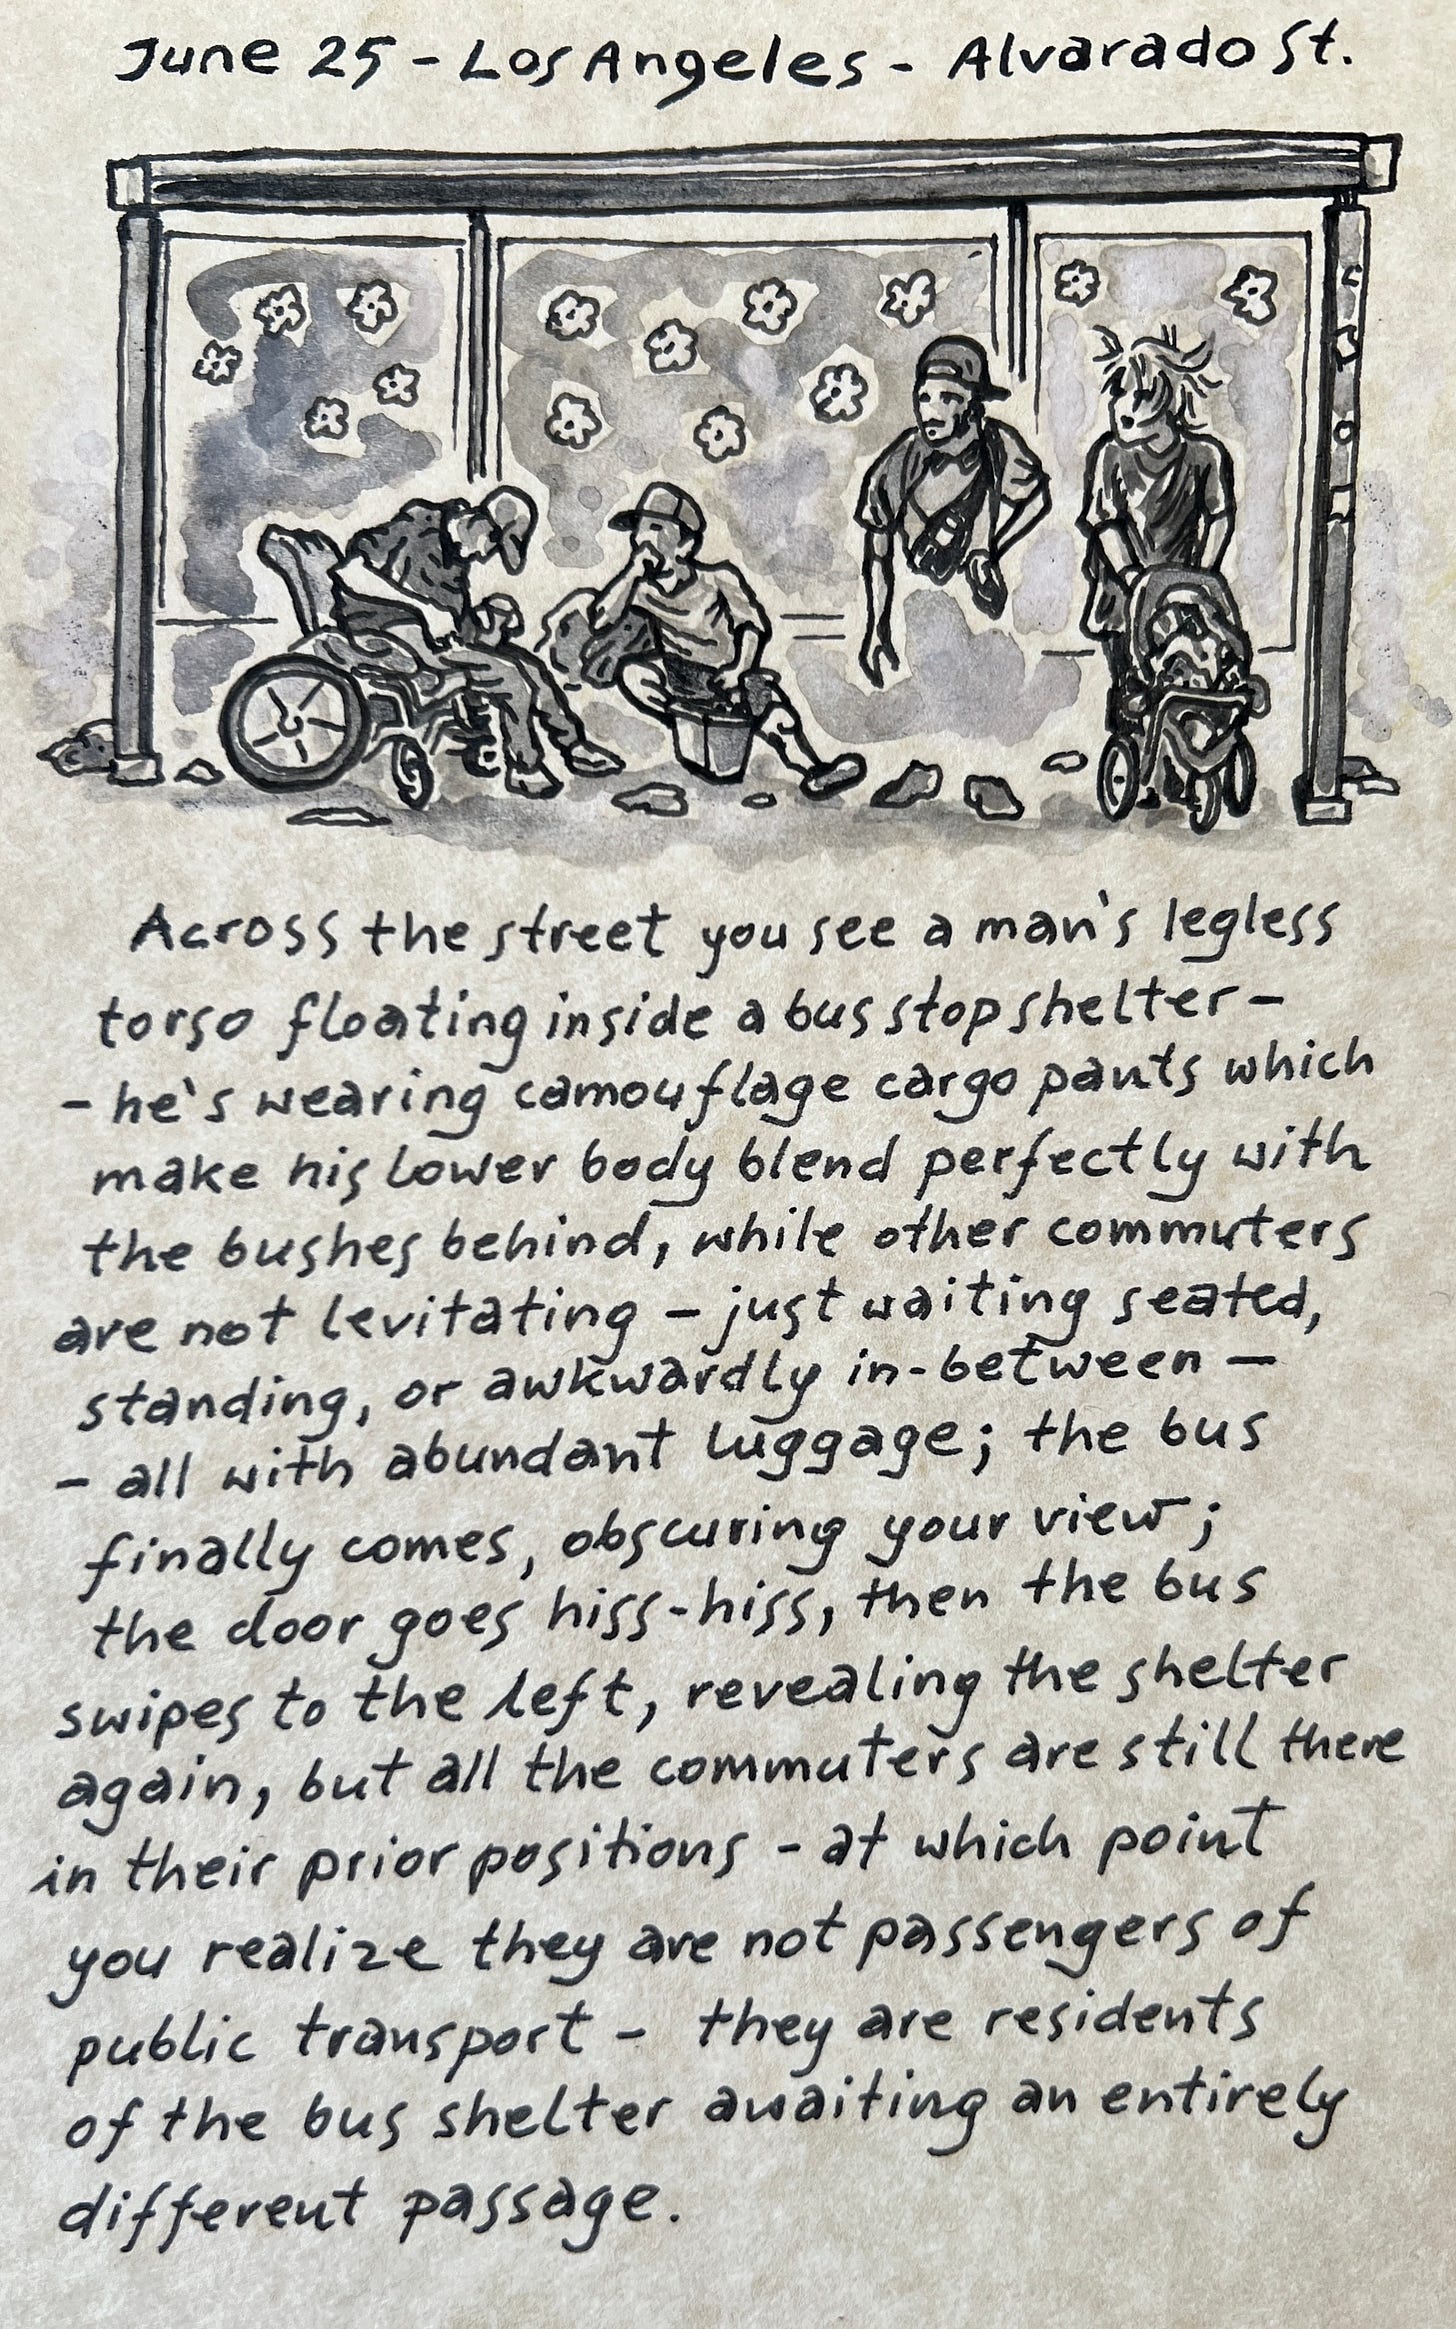 June 25 - Los Angeles - Alvarado St.
Across the street you see a man's legless
torso floating inside a bus stop shelter -
- he's wearing camouflage cargo pants which
make his lower body blend perfectly with
the bushes behind, while other commuters
are not levitating - just waiting seated,
standing, or awkwardly in-between -
- all with abundant luggage; the bus
finally comes, obscuring your view;
the door goes hiss-hiss, then the bus
swipes to the left, revealing the shelter
again, but all the commuters are still there
in their prior positions - at which point
you realize they are not passengers of
public transport - they are residents
of the bus shelter awaiting an entirely
different passage.